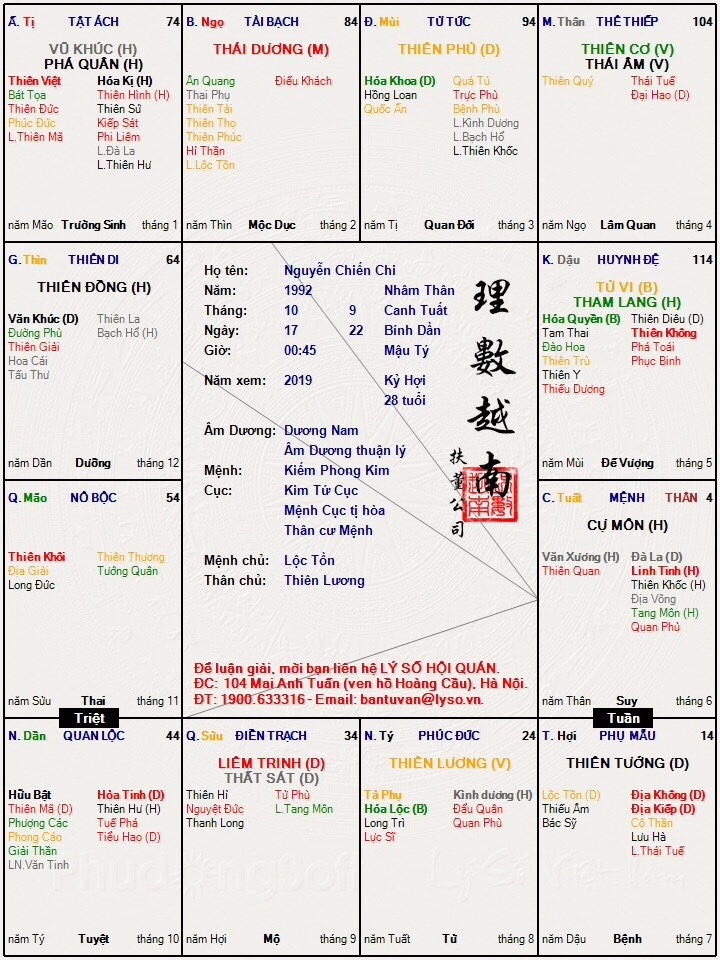 Ấ. Tị TẬT ÁCH 74
VŨ KHÚC (H)
PHÁ QUÂN (H)
Thiên Việt Hóa Kị (H)
Bát Tọa Thiên Hình (H)
Thiên Đức Thiên Sứ
Phúc Đức Kiếp Sát
L.Thiên Mã Phi Liêm
L.Đà La
L.Thiên Hư
năm Mão Trường Sinh tháng 1
B. Ngọ TÀI BẠCH 84
THÁI DƯƠNG (M)
Ân Quang Điếu Khách
Thai Phụ
Thiên Tài
Thiên Thọ
Thiên Phúc
Hỉ Thần
L.Lộc Tồn
năm Thìn Mộc Dục tháng 2
Đ. Mùi TỬ TỨC 94
THIÊN PHỦ (D)
Hóa Khoa (D) Quả Tú
Hồng Loan Trực Phù
Quốc Ấn Bệnh Phù
L.Kình Dương
L.Bạch Hổ
L.Thiên Khốc
năm Tị Quan Đới tháng 3
M. Thân THÊ THIẾP 104
THIÊN CƠ (V)
THÁI ÂM (V)
Thiên Quý Thái Tuế
Đại Hao (D)
năm Ngọ Lâm Quan tháng 4
G. Thìn THIÊN DI 64
THIÊN ĐỒNG (H)
Văn Khúc (D) Thiên La
Đường Phù Bạch Hổ (H)
Thiên Giải
Hoa Cái
Tấu Thư
năm Dần Dưỡng tháng 12
Họ tên: Nguyễn Chiến Chi
Năm: 1992 Nhâm Thân
Tháng: 10 9 Canh Tuất
Ngày: 17 22 Bính Dần
Giờ: 00:45 Mậu Tý
Năm xem: 2019 Kỷ Hợi
28 tuổi
Âm Dương: Dương Nam
Âm Dương thuận lý
Mệnh: Kiếm Phong Kim
Cục: Kim Tứ Cục
Mệnh Cục tị hòa
Thân cư Mệnh
Mệnh chủ: Lộc Tồn
Thân chủ: Thiên Lương
理數越南
扶董公司
Để luận giải, mời bạn liên hệ LÝ SỐ HỘI QUÁN.
ĐC: 104 Mai Anh Tuấn (ven hồ Hoàng Cầu), Hà Nội.
ĐT: 1900.633316 - Email: bantuvan@lyso.vn.
K. Dậu HUYNH ĐỆ 114
TỬ VI (B)
THAM LANG (H)
Hóa Quyền (B) Thiên Diêu (D)
Tam Thai Thiên Không
Đào Hoa Phá Toái
Thiên Trù Phục Binh
Thiên Y
Thiếu Dương
năm Mùi Đế Vượng tháng 5
Q. Mão NÔ BỘC 54
Thiên Khôi Thiên Thương
Địa Giải Tướng Quân
Long Đức
năm Sửu Thai tháng 11
C. Tuất MỆNH THÂN 4
CỰ MÔN (H)
Văn Xương (H) Đà La (D)
Thiên Quan Linh Tinh (H)
Thiên Khốc (H)
Địa Võng
Tang Môn (H)
Quan Phủ
năm Thân Suy tháng 6
Triệt
Tuần
N. Dần QUAN LỘC 44
Hữu Bật Hỏa Tinh (D)
Thiên Mã (D) Thiên Hư (H)
Phượng Các Tuế Phá
Phong Cáo Tiểu Hao (D)
Giải Thần
LN.Văn Tinh
năm Tý Tuyệt tháng 10
Q. Sửu ĐIỀN TRẠCH 34
LIÊM TRINH (D)
THẤT SÁT (D)
Thiên Hỉ Tử Phù
Nguyệt Đức L.Tang Môn
Thanh Long
năm Hợi Mộ tháng 9
N. Tý PHÚC ĐỨC 24
THIÊN LƯƠNG (V)
Tả Phụ Kình dương (H)
Hóa Lộc (B) Đẩu Quân
Long Trì Quan Phù
Lực Sĩ
năm Tuất Tử tháng 8
T. Hợi PHỤ MẪU 14
THIÊN TƯỚNG (D)
Lộc Tồn (D) Địa Không (D)
Thiếu Âm Địa Kiếp (D)
Bác Sỹ Cô Thần
Lưu Hà
L.Thái Tuế
năm Dậu Bệnh tháng 7